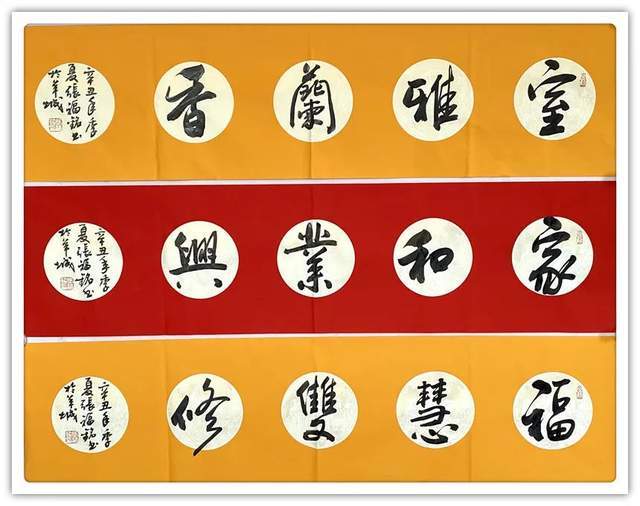 室雅蘭香
辛丑年季
夏張福銘書
於羊城
家和業興
辛丑年季
夏張福銘書
於羊城
福慧雙修
辛丑年季
夏張福銘書
於羊城